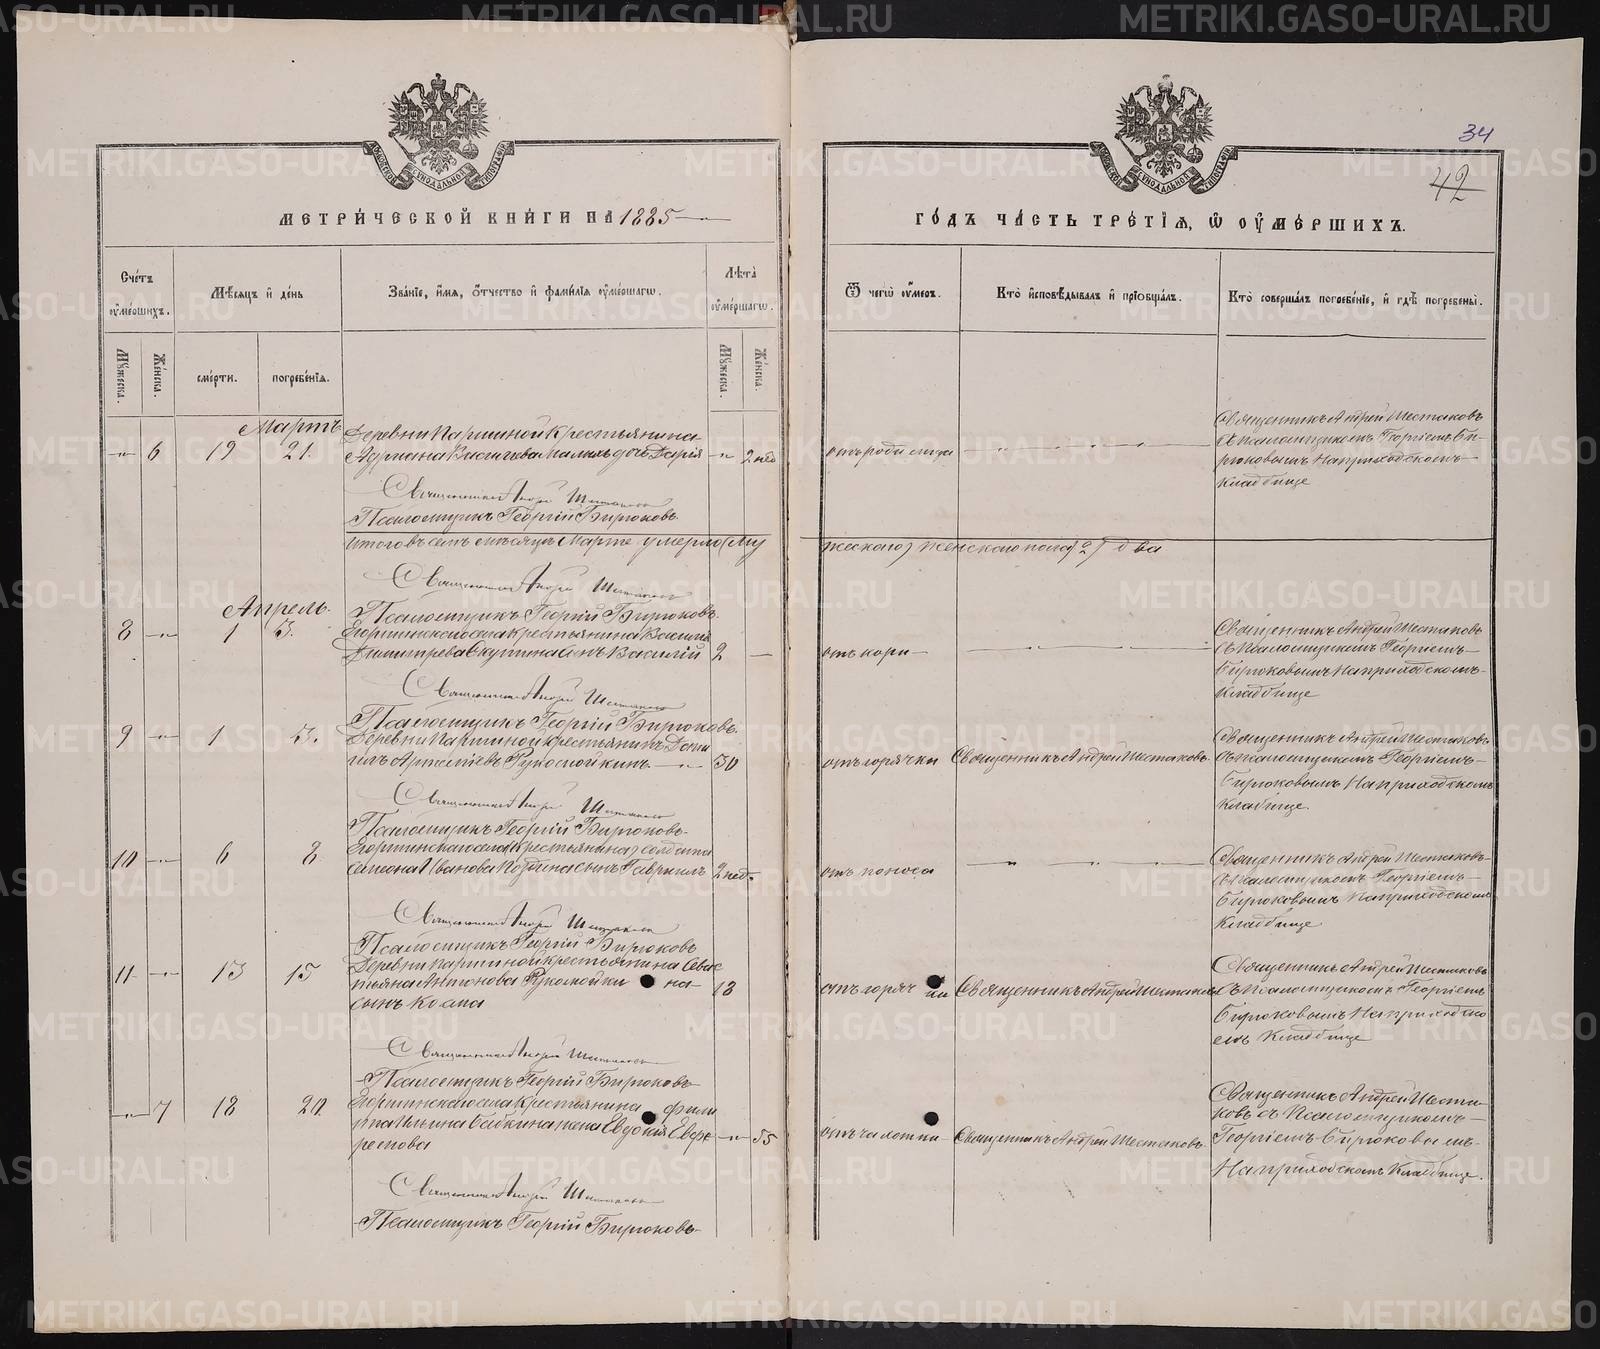 МЕТРИЧЕСКОЙ КНИГИ НА 1885
Счетъ умершихъ.
Мѣсяцъ и день
Званіе, имя, отчество и фамилія умершагѡ.
Лѣта умершагѡ.
Мужеска.
Женска.
смерти.
погребенія.
Мужеска.
Женска.
Мартъ
6 19 21. Деревни Паршиной крестьянина
дочь Дарія 2 нед
Священникъ Андрей Шестаковъ
Псаломщикъ Георгій Бирюковъ.
Итого въ семъ мѣсяцѣ Мартѣ умерло (Му
Священникъ Андрей Шестаковъ
Апрель.
Псаломщикъ Георгій Бирюковъ.
8 1 3. Егоршинскаго села крестьянина Василія
Димитрева Скутина сынъ Василій 2
Священникъ Андрей Шестаковъ
Псаломщикъ Георгій Бирюковъ.
9 1 3. Деревни Паршиной крестьянинъ
Артеміевъ 30
Священникъ Андрей Шестаковъ
Псаломщикъ Георгій Бирюковъ.
10 6 8 Егоршинскаго села крестьянина солдата
Семена Иванова сынъ Гавріилъ 2 нед.
Священникъ Андрей Шестаковъ
Псаломщикъ Георгій Бирюковъ
11 13 15 Деревни Паршиной крестьянина Севас
тьяна Антонова Рукомойкина 18
сынъ Козма
Священникъ Андрей Шестаковъ
Псаломщикъ Георгій Бирюковъ
7 18 20. Егоршинскаго села крестьянина Фили
па Ильина Бабкина жена Евдокія 55
Священникъ Андрей Шестаковъ
Псаломщикъ Георгій Бирюковъ
34
42
ГОДЪ ЧАСТЬ ТРЕТІЯ, Ѡ ОУМЕРШИХЪ.
Ѿ чегѡ умеръ.
Кто исповѣдывалъ и пріобщалъ.
Кто совершалъ погребеніе, и гдѣ погребены.
Священникъ Андрей Шестаковъ
съ Псаломщикомъ Георгіемъ Би-
отъ родимца
рюковымъ На приходскомъ
Кладбище
жескаго) Женскаго пола (2) два
Священникъ Андрей Шестаковъ
отъ кори
съ Псаломщикомъ Георгіемъ
Бирюковымъ На приходскомъ
Кладбище
Священникъ Андрей Шестаковъ
отъ горячки Священникъ Андрей Шестаковъ
съ Псаломщикомъ Георгіемъ
Бирюковымъ На приходскомъ
Кладбище.
Священникъ Андрей Шестаковъ
отъ поноса
съ Псаломщикомъ Георгіемъ
Бирюковымъ На приходскомъ
Кладбище
Священникъ Андрей Шестаковъ
отъ горячки Священникъ Андрей Шестаковъ
съ Псаломщикомъ Георгіемъ
Бирюковымъ На приходско
мъ Кладбище
Священникъ Андрей Шеста
ковъ съ Псаломщикомъ
отъ чахотки Священникъ Андрей Шестаковъ
Георгіемъ Бирюковымъ
На приходскомъ Кладбище.
METRIKI.GASO-URAL.RU